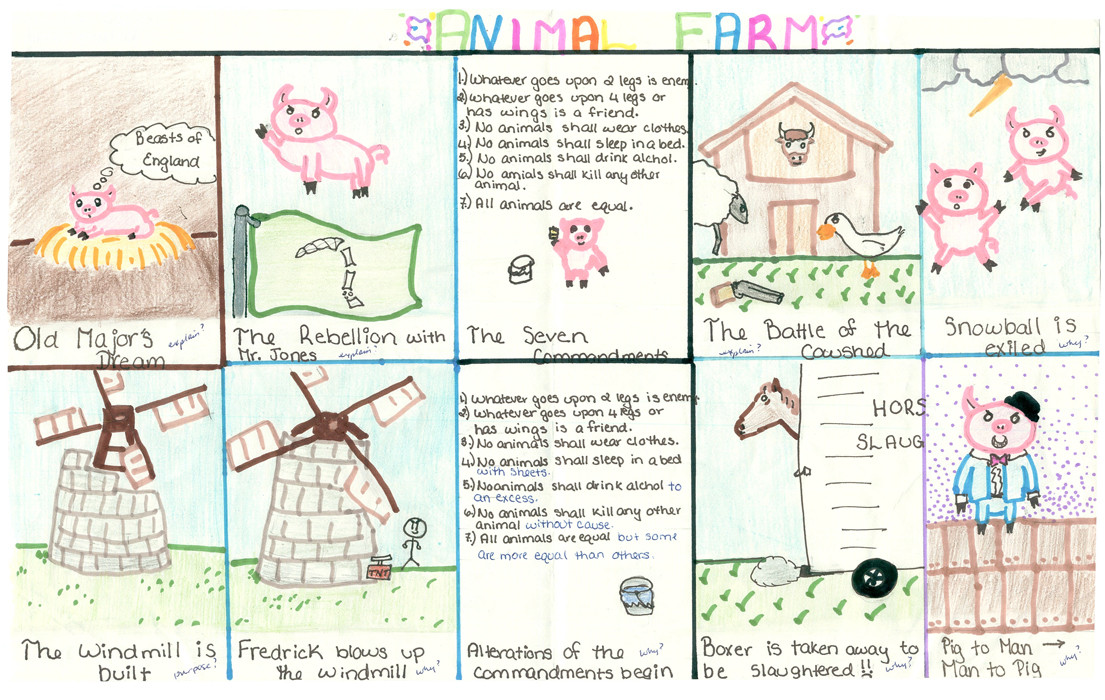 ANIMAL FARM
Beasts of
England
Old Major's
Dream
explain?
The Rebellion with
Mr. Jones
explain?
1.) Whatever goes upon 2 legs is enem
2.) Whatever goes upon 4 legs or
has wings is a friend.
3.) No animals shall wear clothes.
4.) No animals shall sleep in a bed.
5.) No animals shall drink alchol.
6.) No amials shall kill any other
animal.
7.) All animals are equal.
The Seven
Commandments
The Battle of the
Cowshed
explain?
Snowball is
exiled
why?
The Windmill is
built
purpose?
TNT
Fredrick blows up
the windmill
why?
1.) Whatever goes upon 2 legs is enem
2.) Whatever goes upon 4 legs or
has wings is a friend.
3.) No animals shall wear clothes.
4.) No animals shall sleep in a bed
with sheets.
5.) No animals shall drink alchol to
an excess.
6.) No animals shall kill any other
animal without cause.
7.) All animals are equal but some
are more equal than others.
Alterations of the
commandments begin
why?
HORS
SLAUG
Boxer is taken away to
be slaughtered!!
why?
Pig to Man →
Man to Pig
why?